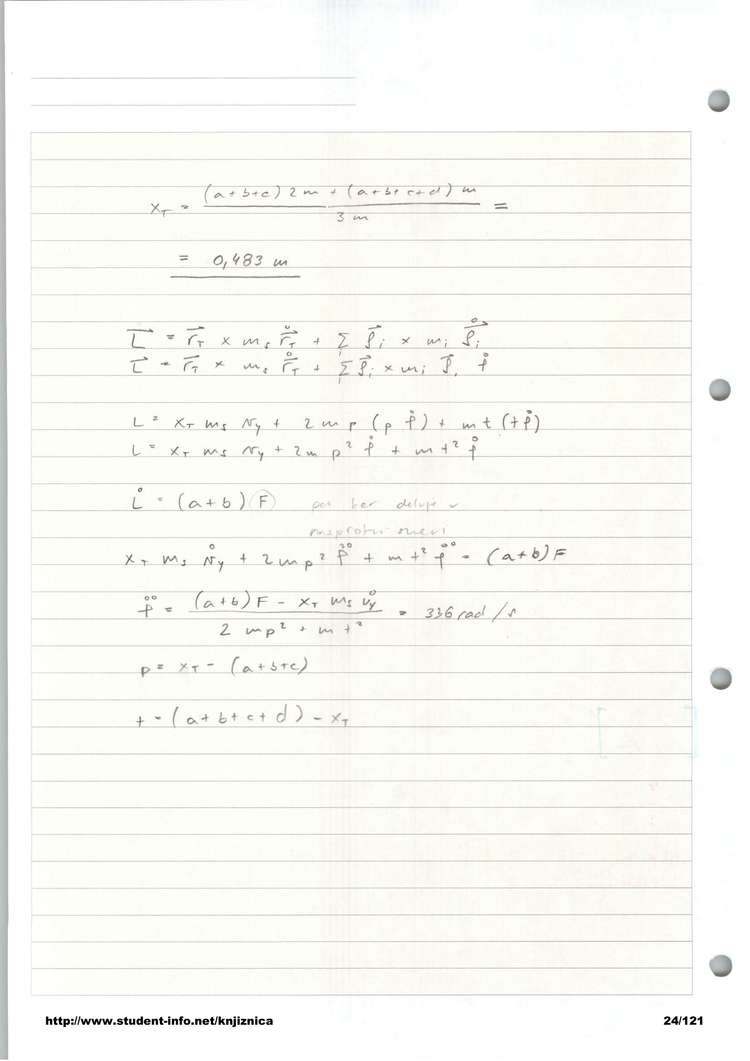 x_T = ((a+b+c) 2m + (a+b+c+d) m) / 3m =
= 0,483 m
L⃗ = r⃗_T × m_s r⃗̊_T + Σ ρ⃗_i × m_i ρ⃗̊_i
L⃗ = r⃗_T × m_s r⃗̊_T + Σ ρ⃗_i × m_i
L = x_T m_s v_y + 2 m p (p φ̊) + m t (t φ̊)
L = x_T m_s v_y + 2 m p² φ̊ + m t² φ̊
L̊ = (a+b) F ker deluje v
nasprotni smeri
x_T m_s v̊_y + 2 m p² φ̊̊ + m t² φ̊̊ = (a+b) F
φ̊̊ = ((a+b) F - x_T m_s v̊_y) / (2 m p² + m t²) = 336 rad/s
p = x_T - (a+b+c)
t = (a+b+c+d) - x_T
http://www.student-info.net/knjiznica 24/121